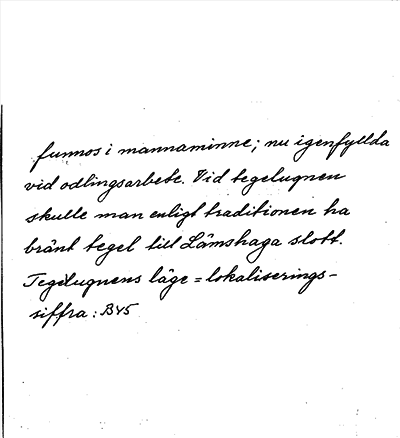 funnos i mannaminne; nu igenfyllda
vid odlingsarbete. Vid tegelugnen
skulle man enligt traditionen ha
bränt tegel till Lämshaga slott.
Tegelugnens läge = lokaliserings-
siffra: B45